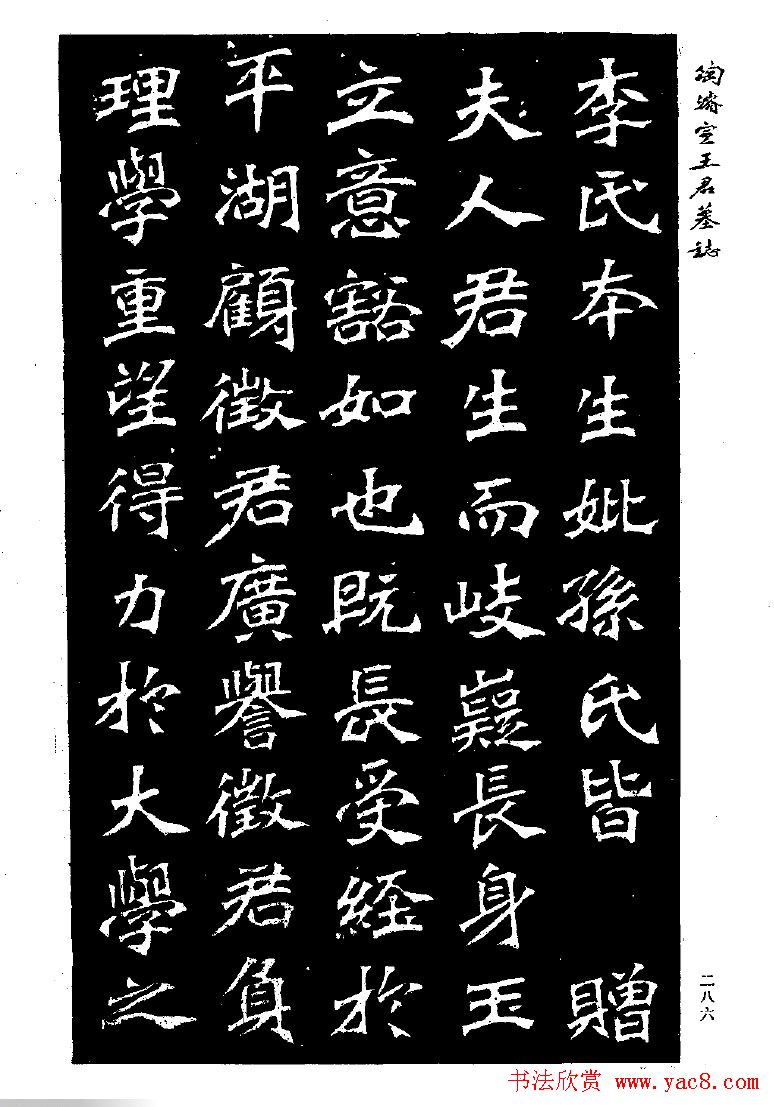 陶濬宣王君墓誌
李氏本生妣孫氏皆 贈
夫人君生而岐嶷長身玉
立意豁如也既長受經於
平湖顧徵君廣譽徵君負
理學重望得力於大學之
二八六
书法欣赏 www.yac8.com